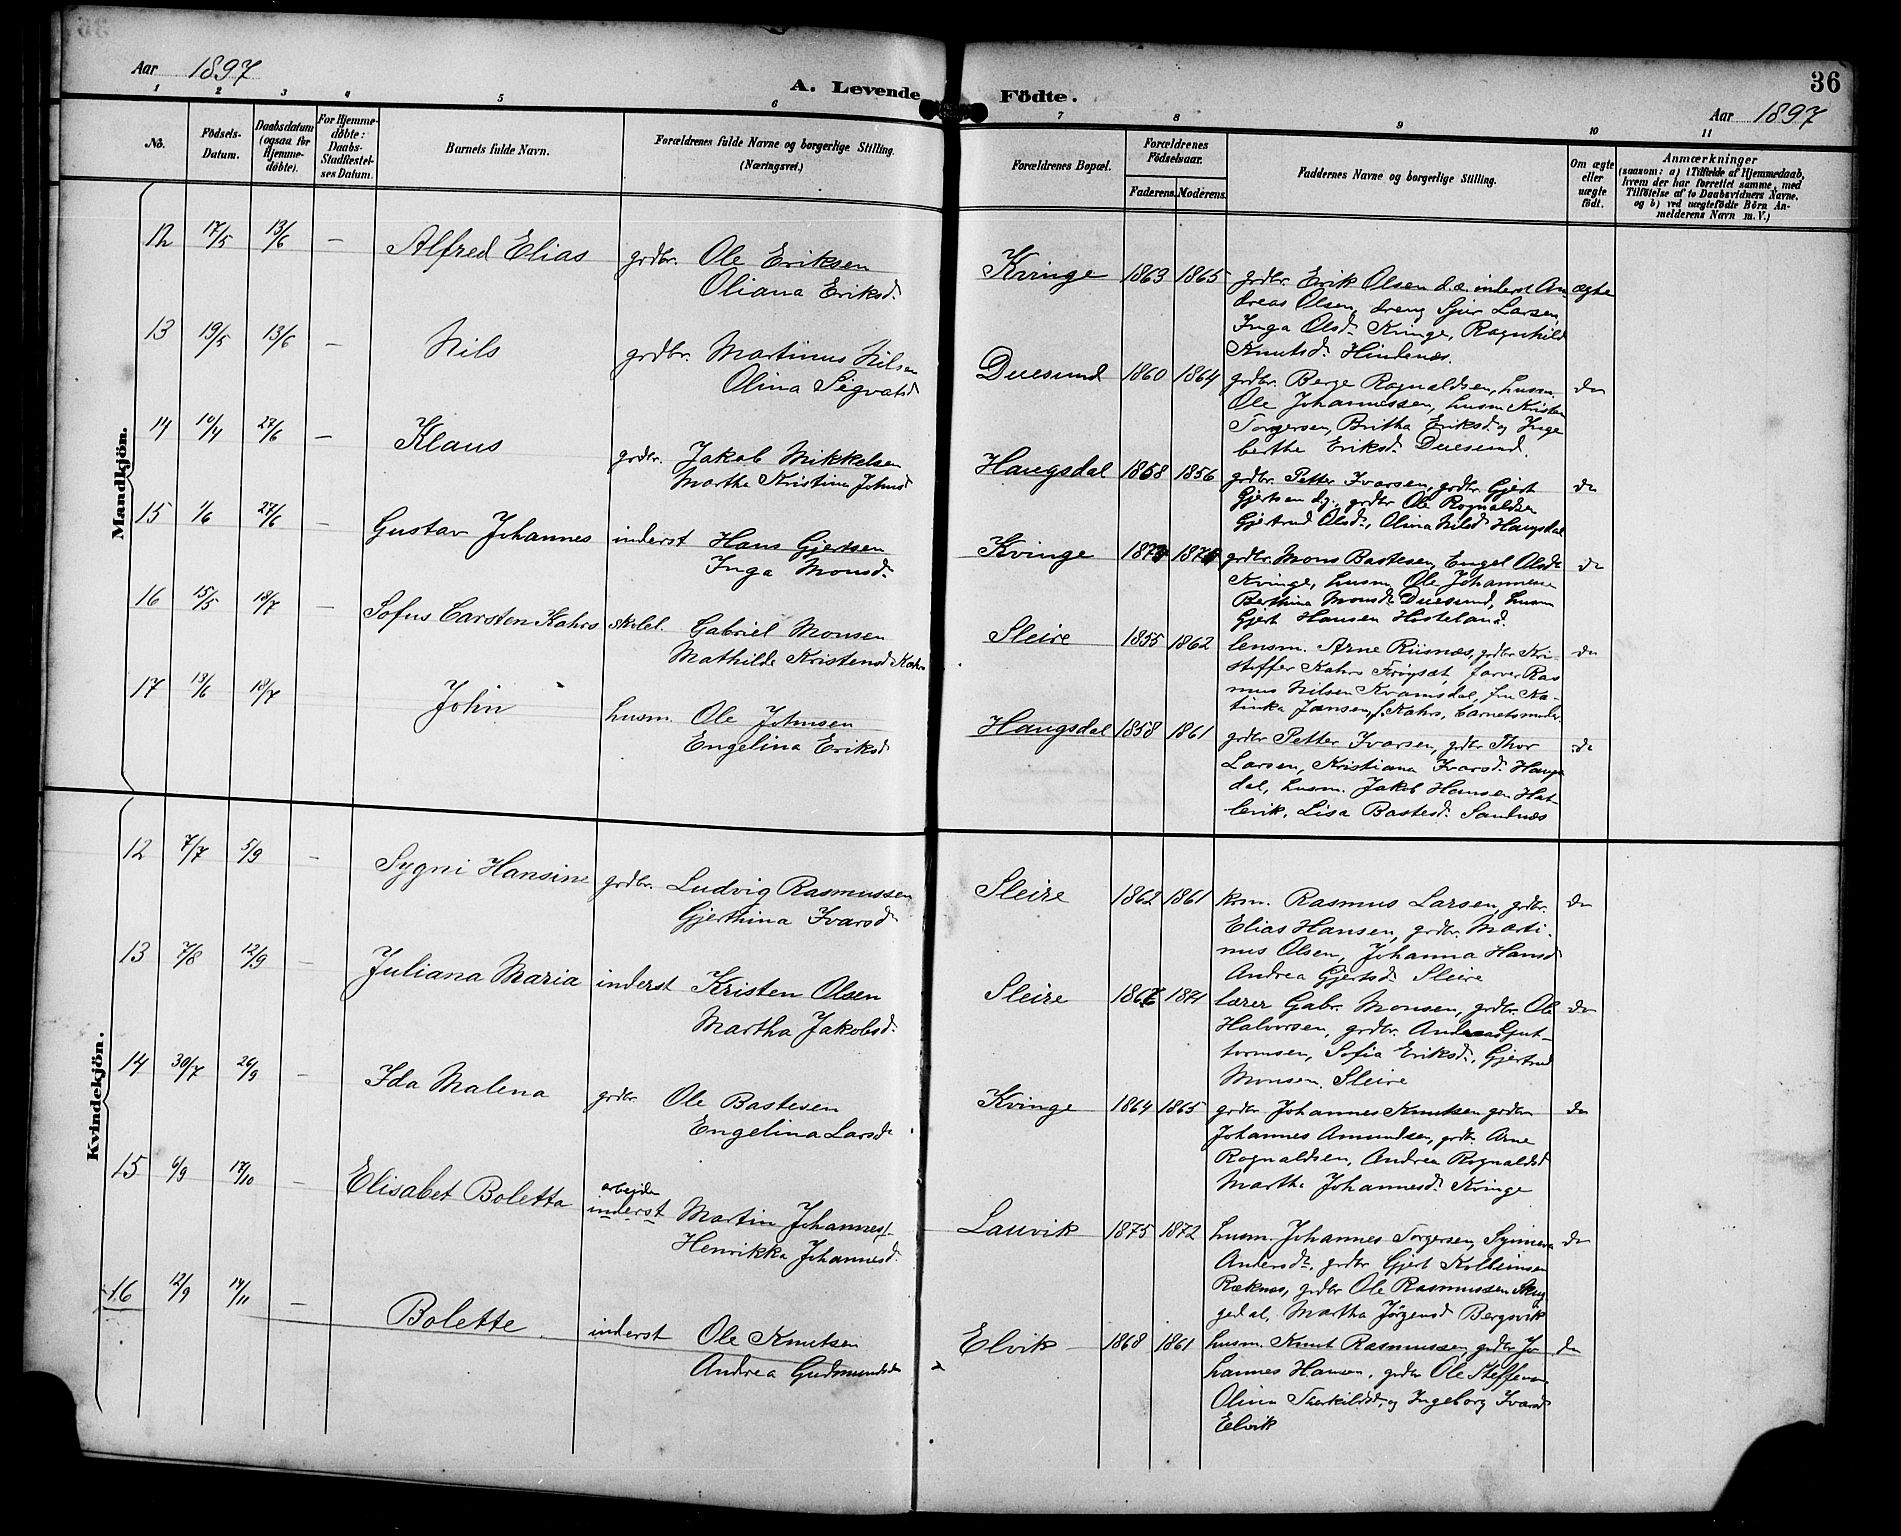 Aar 1897
A. Levende Fødte.
36
Aar 1897
1 2 3 4 5 6 7 8 9 10 11
No.
Fødsels-Datum.
Daabsdatum (ogsaa for Hjemme-døbte).
For Hjemme-døbte: Daabs-Stadfæstelses Datum.
Barnets fulde Navn.
Forældrenes fulde Navne og borgerlige Stilling.
(Næringsvei.)
Forældrenes Bopæl.
Forældrenes Fødselsaar.
Faderens. Moderens.
Faddernes Navne og borgerlige Stilling.
Om ægte eller uægte født.
Anmærkninger
(saasom: a) i Tilfælde af Hjemmedaab,
hvem der har forrettet samme, med
Tilføielse af to Daabsvidners Navne,
og b) ved uægtefødte Børn An-
melderens Navn m. V.)
Mandkjøn.
12 17/5 13/6 — Alfred Elias grdbr. Ole Eriksen
Oliana Eriksd.
Kvinge 1863 1865 grdbr. Erik Olsen d.æ. inderst An ægte
dreas Olsen, dreng Sjur Larsen,
Inga Olsd. Kvinge, Ragnhild
Knutsd. Hindenæs.
13 19/5 13/6 — Nils grdbr. Martinus Nilsen
Olina Sigvatsd
Duesund 1860 1864 grdbr. Berge Rognaldsen, husm. do
Ole Johannessen, husm Kristen
Torgersen, Britha Eriksd. og Inge
berthe Eriksd. Duesund.
14 10/4 27/6 — Klaus grdbr. Jakob Mikkelsen
Martha Kristina Johnsd
Haugsdal 1858 1856 grdbr. Petter Ivarsen, grdbr. Gjert do
Gjertsen d.y., grdbr Ole Rognaldsen
Gjertrud Olsd., Olina Nilsd Haugsdal
15 1/6 27/6 — Gustav Johannes inderst Hans Gjertsen
Inga Monsd.
Kvinge grdbr. Mons Bastesen, Engel Olsd do
Kvinge, husm. Ole Johannesen
Berthina Monsd. Duesund, husm
Gjert Hansen Histeland.
16 15/5 18/7 — Sofus Carsten Kahrs skolel. Gabriel Monsen
Mathilde Kristensd Kahrs
Sleire 1855 1862 lensm. Arne Riisnæs, grdbr Kri- do
stoffer Kahrs Frøyset, farver Ras
mus Nilsen Kvamsdal, fru Ka-
tinka Jansen, f. Kahrs, barnets moder.
17 13/6 18/7 John husm. Ole Johnsen
Engelina Eriksd
Haugsdal 1858 1861 grdbr Petter Ivarsen, grdbr Thor do
Larsen, Kristiana Ivarsd. Haugs
dal, husm. Jakob Hansen Hat-
levik, Lisa Bastesd. Sandnæs
Kvindekjøn.
12 7/7 5/9 — Sygni Hansine grdbr. Ludvig Rasmussen
Gjerthina Ivarsd
Sleire 1862 1861 Rasmus Larsen, grdbr. do
Elias Hansen, grdbr. Marti-
nus Olsen, Johanna Hansd
Andrea Gjertsd. Sleire
13 7/8 12/9 — Juliana Maria inderst Kristen Olsen
Martha Jakobsd.
Sleire 1871 lærer Gabr. Monsen, grdbr. Ole do
Halvorsen, grdbr. Andreas Gut-
tormsen, Sofia Eriksd., Gjertrud
Monsen, Sleire
14 30/7 26/9 — Ida Malena grdbr. Ole Bastesen
Engelina Larsd
Kvinge 1864 1865 grdbr Johannes Knutsen grdbr do
Johannes Amundsen, grdbr. Arne
Rognaldsen, Andrea Rognaldsd
Martha Johannesd. Kvinge
15 6/9 17/10 — Elisabet Boletta arbeider
inderst Martin Johannes.
Henrikka Johannesd.
Lauvik 1875 1872 husm. Johannes Torgersen, Synneva do
Andersd., grdbr Gjert Kolbeinsen
Ræknæs, grdbr Ole Rasmussen Skug
gedal, Martha Jørgensd Bergsvik
16 12/9 14/11 — Bolette inderst Ole Knutsen
Andrea Gudmundsd
Elvik 1868 1861 husm. Knut Rasmussen, grdbr Jo do
hannes Hansen, grdbr Ole Steffens
Olina Therkildsd., og Ingeborg Ivarsd
Elvik